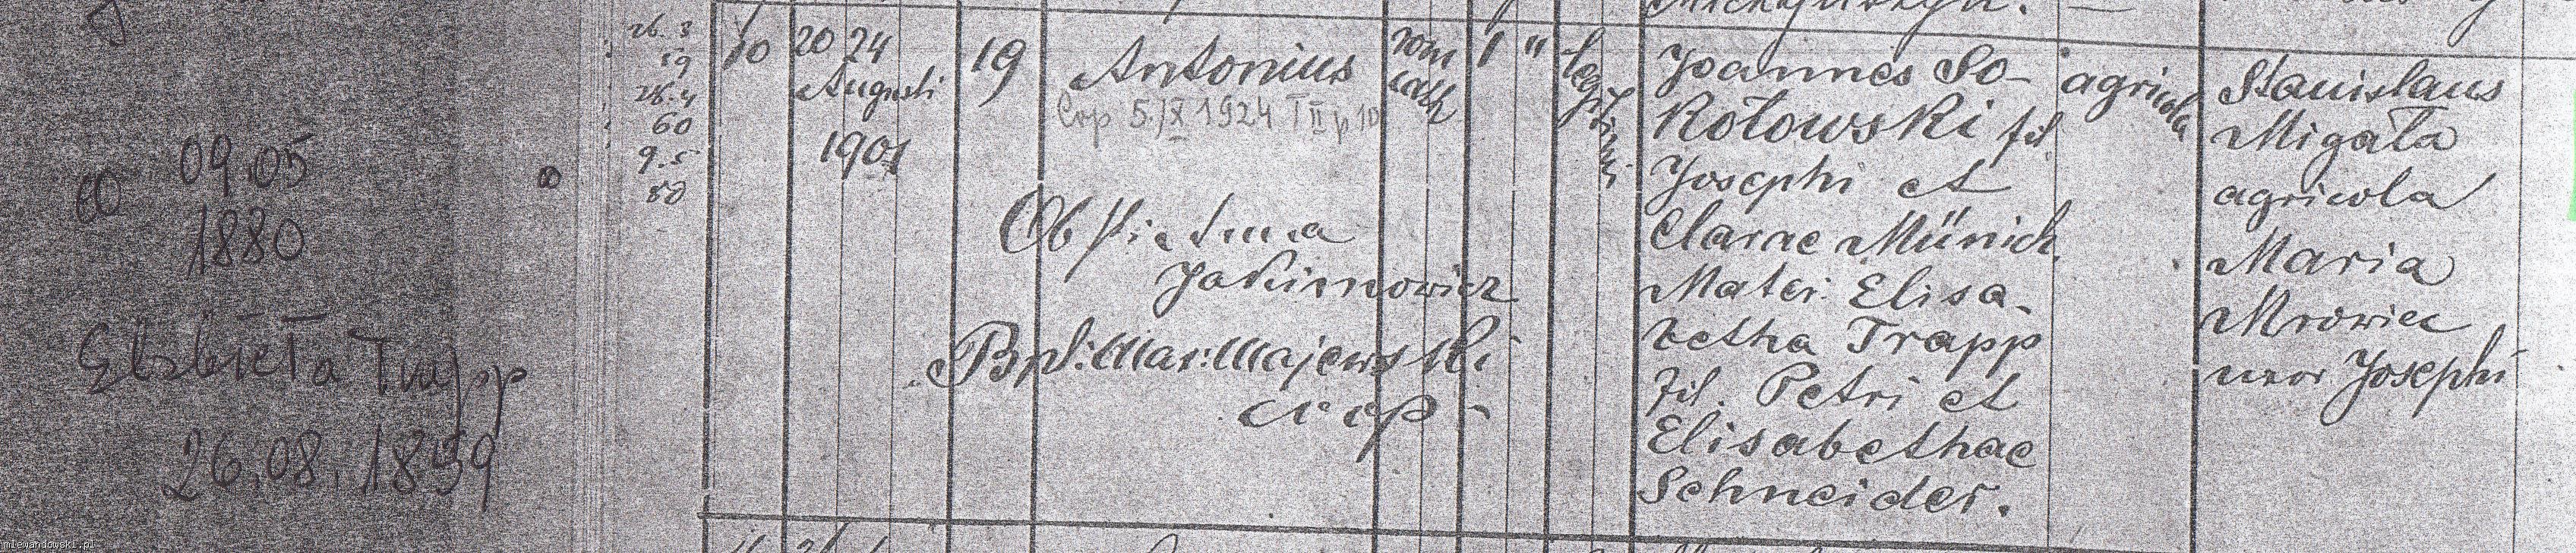 09.05
1880
Elżbieta Trapp
26.08.1859
26.3
59
28.4
60
9.5
80
10
20 24
Augusti
1901
19
Antonius
Cop 5/IX 1924 T II p 10
Obst:
Jakimowicz
Bpt: Mar: Majewski
coop
rom
cath
1
"
legitimi
Joannes So-
kołowski fil.
Josephi et
Clarae Münich.
Mater: Elisa-
betha Trapp
fil. Petri et
Elisabethae
Schneider.
agricola
Stanislaus
Migała
agricola
Maria
Mrowiec
uxor Josephi
mlewandowski.pl